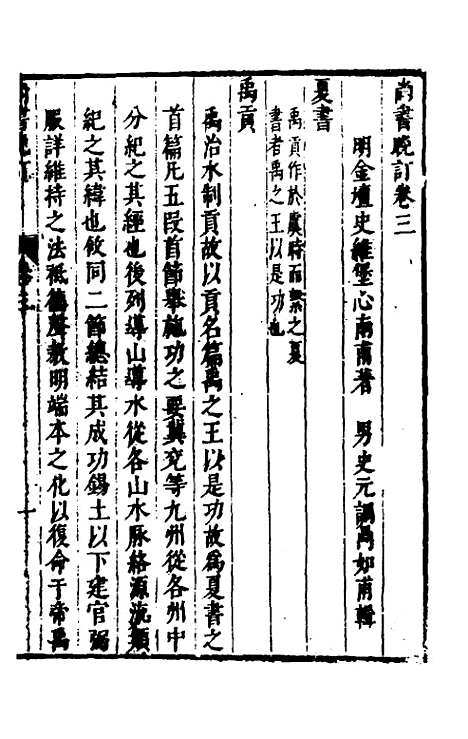 尚書晚訂卷三
明金壇史維堡心南甫著 男史元調禹如甫輯
夏書
禹貢作於虞時而繫之夏
書者禹之王以是功也
禹貢
禹治水制貢故以貢名篇禹之王以是功故為夏書之
首篇凡五段首節舉施功之要冀兗等九州從各州中
分紀之其經也後列導山導水從各山水脉絡源流類
紀之其緯也攸同二節總結其成功錫土以下建官弼
服詳維持之法祗德聲教明端本之化以復命于帝禹